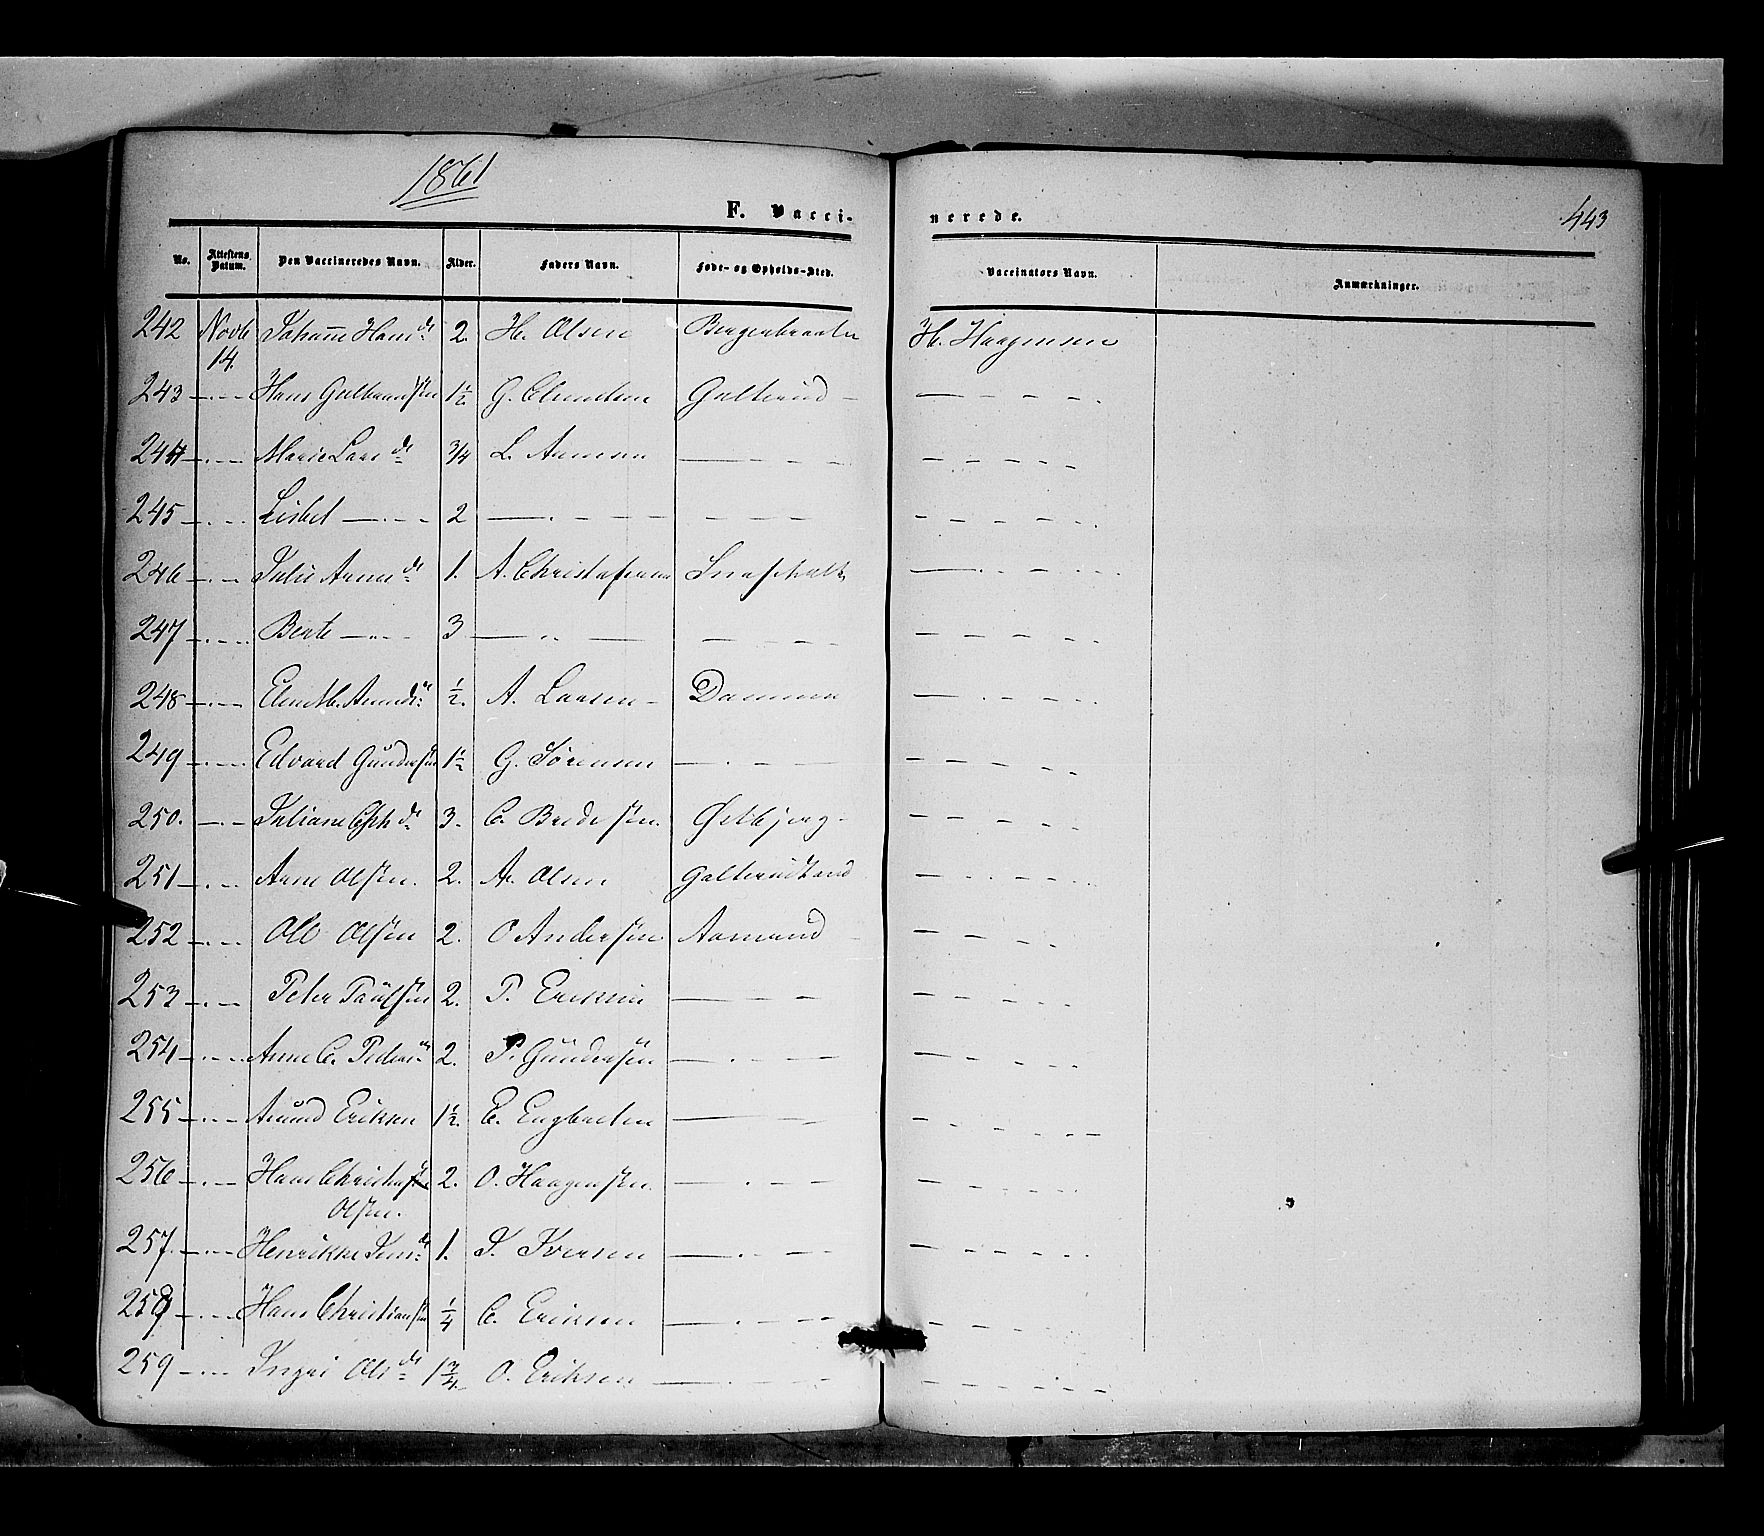 1861
F. Vacci-nerede.
443
No. Attestens Datum. Den Vaccineredes Navn. Alder. Faders Navn. Føde- og Opholds-Sted. Vaccinators Navn. Anmærkninger.
242 Novb 14. Johane Hansd: 2. H. Olsen H. Haagensen
243 —.— Hans Gulbrandsen 1½ G. Galterud — — — — —
244 —.— Marie Larsd: 3/4 L. — — — — — — — —
245 —.— Lisbet —.— 2 — — — — — — — — — —
246 —.— Julie Arned: 1. A. Christofersen — — — — —
247 —.— Berte —.— 3 — — — — — — — — — —
248 —.— Elen M. ½. A. Larsen — Dammen — — — — —
249 —.— Edvard Gundersen 1½ G. Sørensen — — — — — — — —
250. —.— Juliane 3. C. Østbjerg — — — — —
251 —.— Arne Olsen. 2. A. Olsen — — — — —
252 —.— Ole Olsen 2. O Andersen Aamerud — — — — —
253 —.— Peter Paulsen 2. P. Eriksen — — — — — — — —
254 —.— Anne C. 2. P. Gundersen — — — — — — — —
255 —.— Amund Eriksen 1½. E. — — — — — — — —
256 —.— Hans Christian 2. O. Haagensen. — — — — — — — —
Olsen.
257. —.— Henrikke Jensd: 1. J. Iversen — — — — — — — —
258 —.— Hans Christiansen ¼ C. Eriksen — — — — — — — —
259 —.— Ingri Olsd: 1¾. O. Eriksen — — — — — — — —